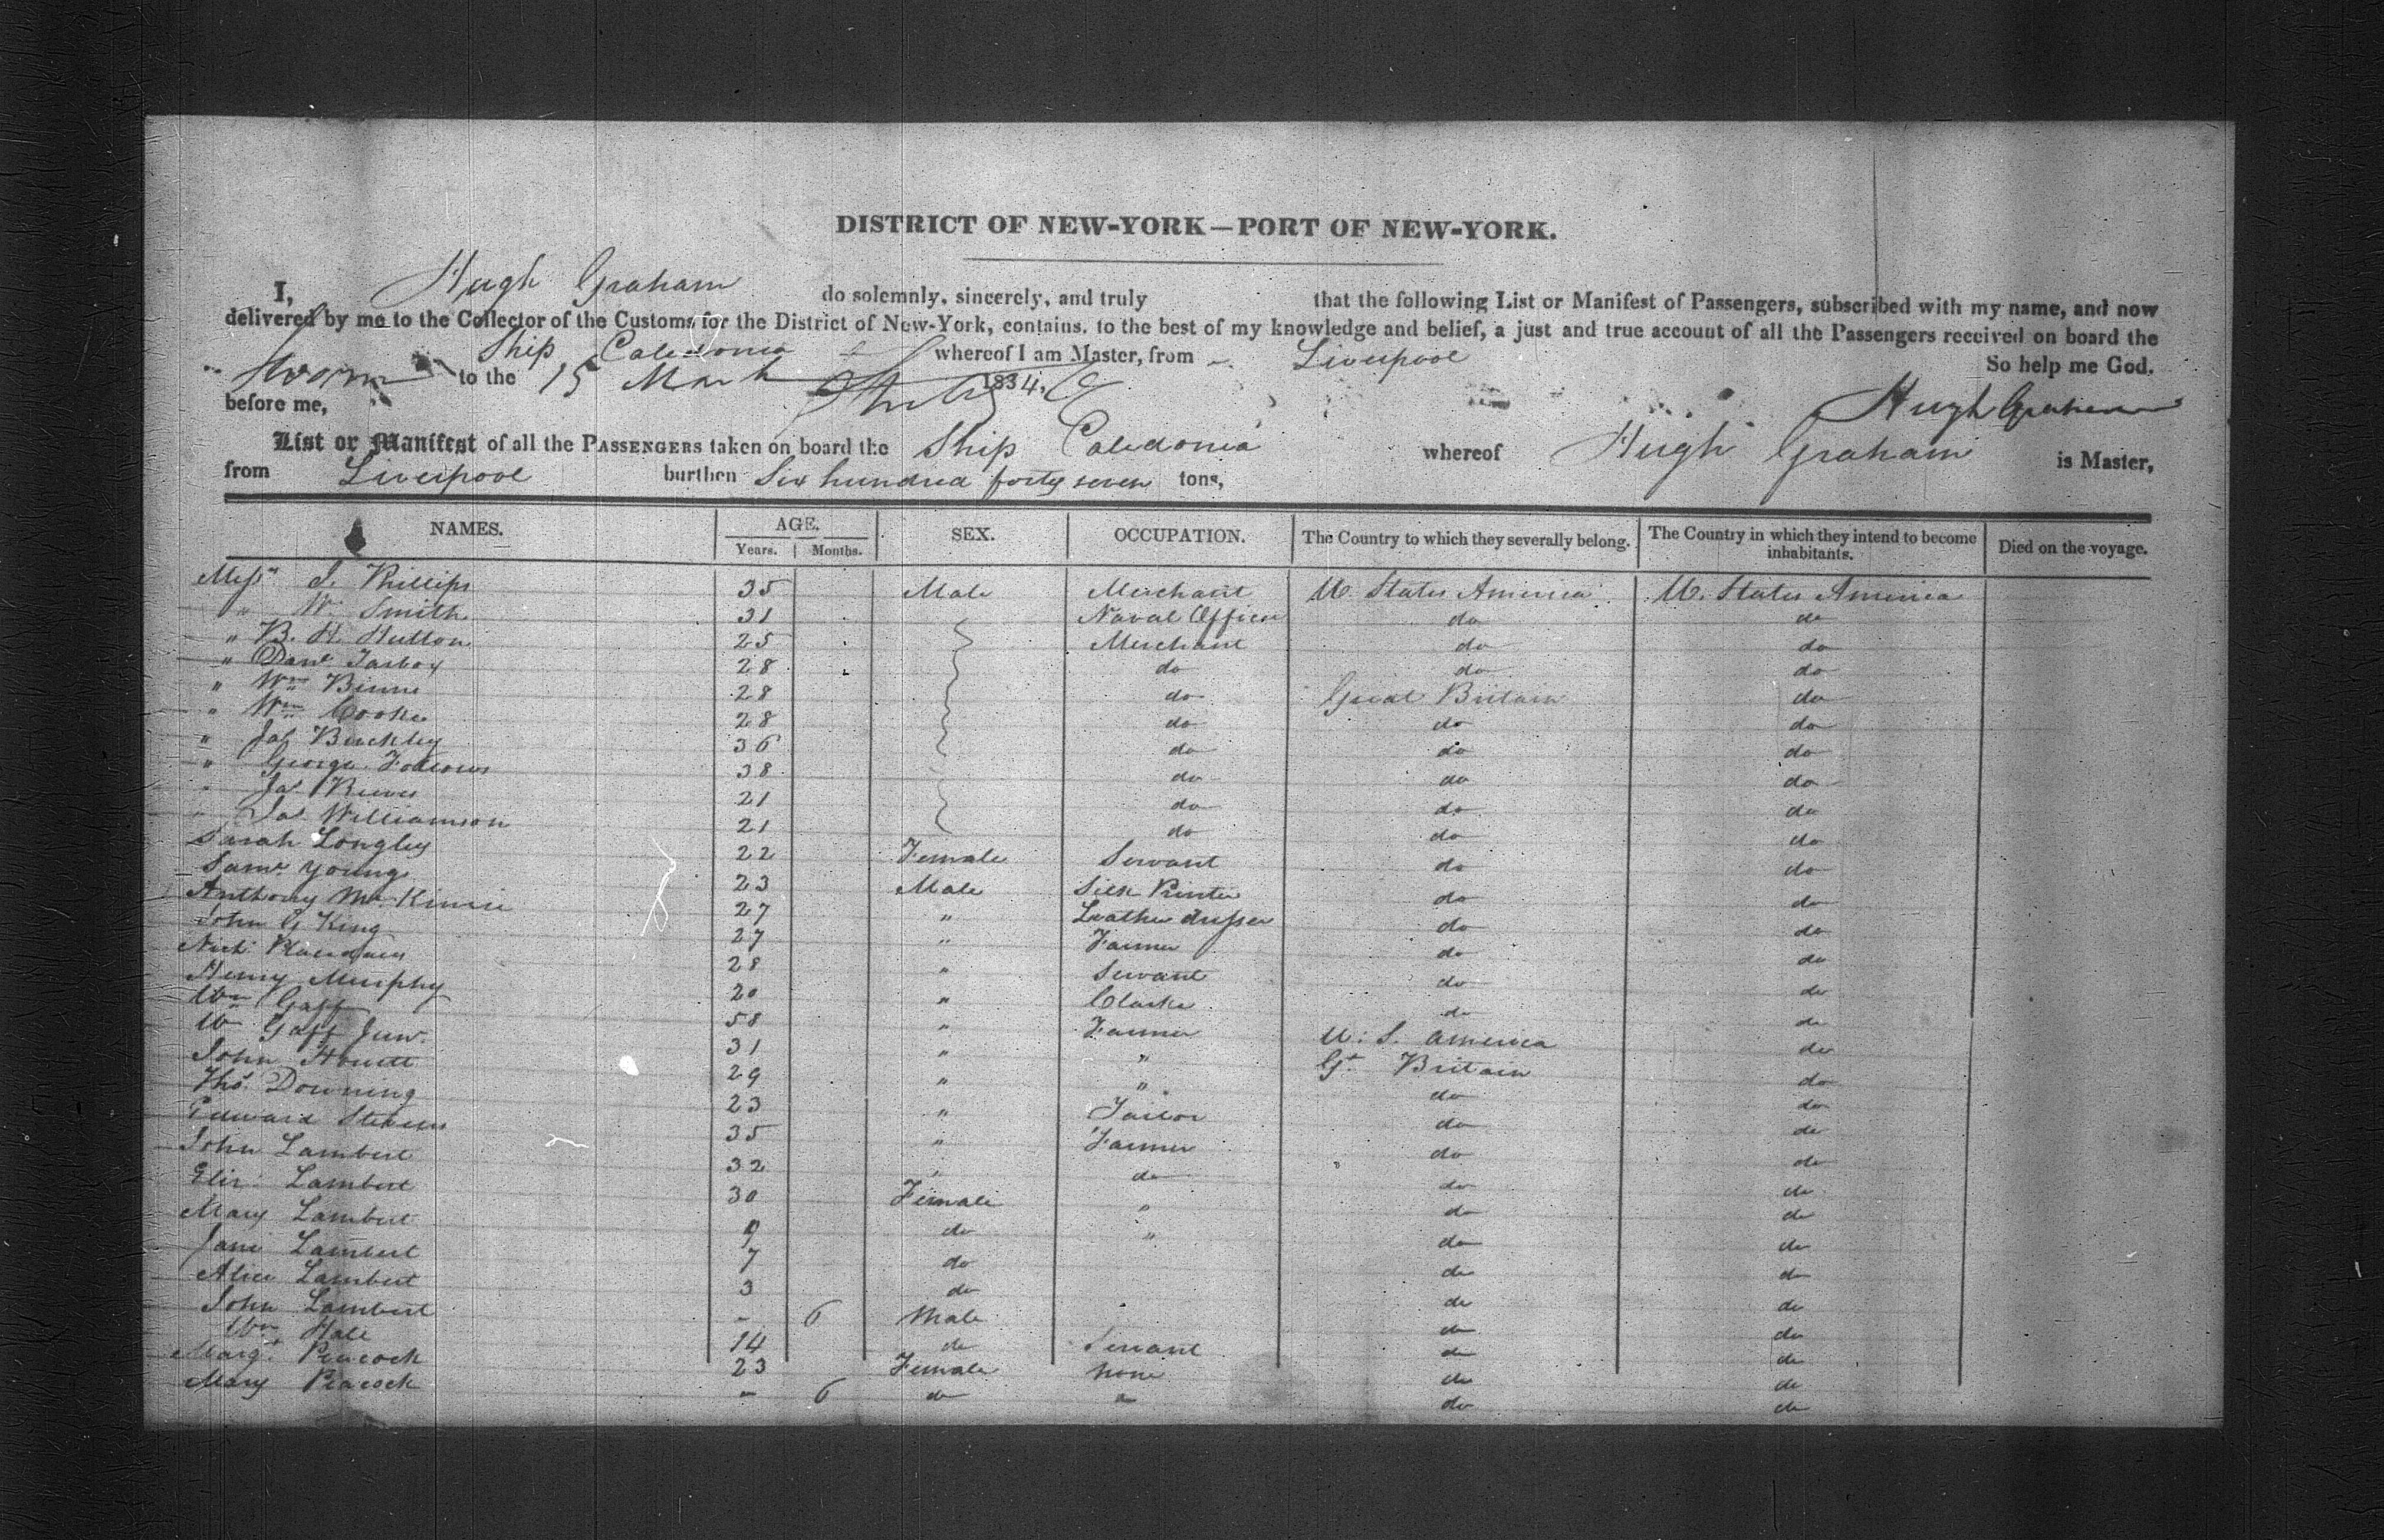 DISTRICT OF NEW-YORK—PORT OF NEW-YORK.
I, Hugh Graham do solemnly, sincerely, and truly that the following List or Manifest of Passengers, subscribed with my name, and now
delivered by me to the Collector of the Customs for the District of New-York, contains, to the best of my knowledge and belief, a just and true account of all the Passengers received on board the
Ship Caledonia whereof I am Master, from Liverpool So help me God.
Sworn to the 15 March 1834.
before me, Hugh Graham
List or Manifest of all the PASSENGERS taken on board the Ship Caledonia whereof Hugh Graham is Master,
from Liverpool burthen Six hundred forty seven tons,
NAMES. AGE. SEX. OCCUPATION. The Country to which they severally belong. The Country in which they intend to become inhabitants. Died on the voyage.
Years. Months.
Messrs S. Phillips 35 Male Merchant U. States America U. States America
" W. Smith 31 Naval Officer do do
" B. H. Hutton 25 Merchant do do
" Danl Tarbox 28 do do do
" Wm Binne 28 do Great Britain do
" Wm Cooke 28 do do do
" Jas Buckley 36 do do do
" George 38 do do do
" Jas Reeves 21 do do do
" Jas Williamson 21 do do do
Sarah Longley 22 Female Servant do do
Saml Young 23 Male Silk Printer do do
Anthony McKinnie 27 " Leather dresser do do
John G King 27 " Farmer do do
Nich 28 " Servant do do
Henry Murphy 20 " Clarke do do
Wm Gaff 58 " Farmer U. S. America do
Wm Gaff Junr. 31 " " Gt Britain do
John 29 " " do do
Thos. Downing 23 " Tailor do do
Edward Stevens 35 " Farmer do do
John Lambert 32 " do do do
Eliz: Lambert 30 Female " do do
Mary Lambert 9 do " do do
Jane Lambert 7 do do do
Alice Lambert 3 do do do
John Lambert - 6 Male do do
Wm Hall 14 do Servant do do
Margt. Peacock 23 Female none do do
Mary Peacock - 6 do do do